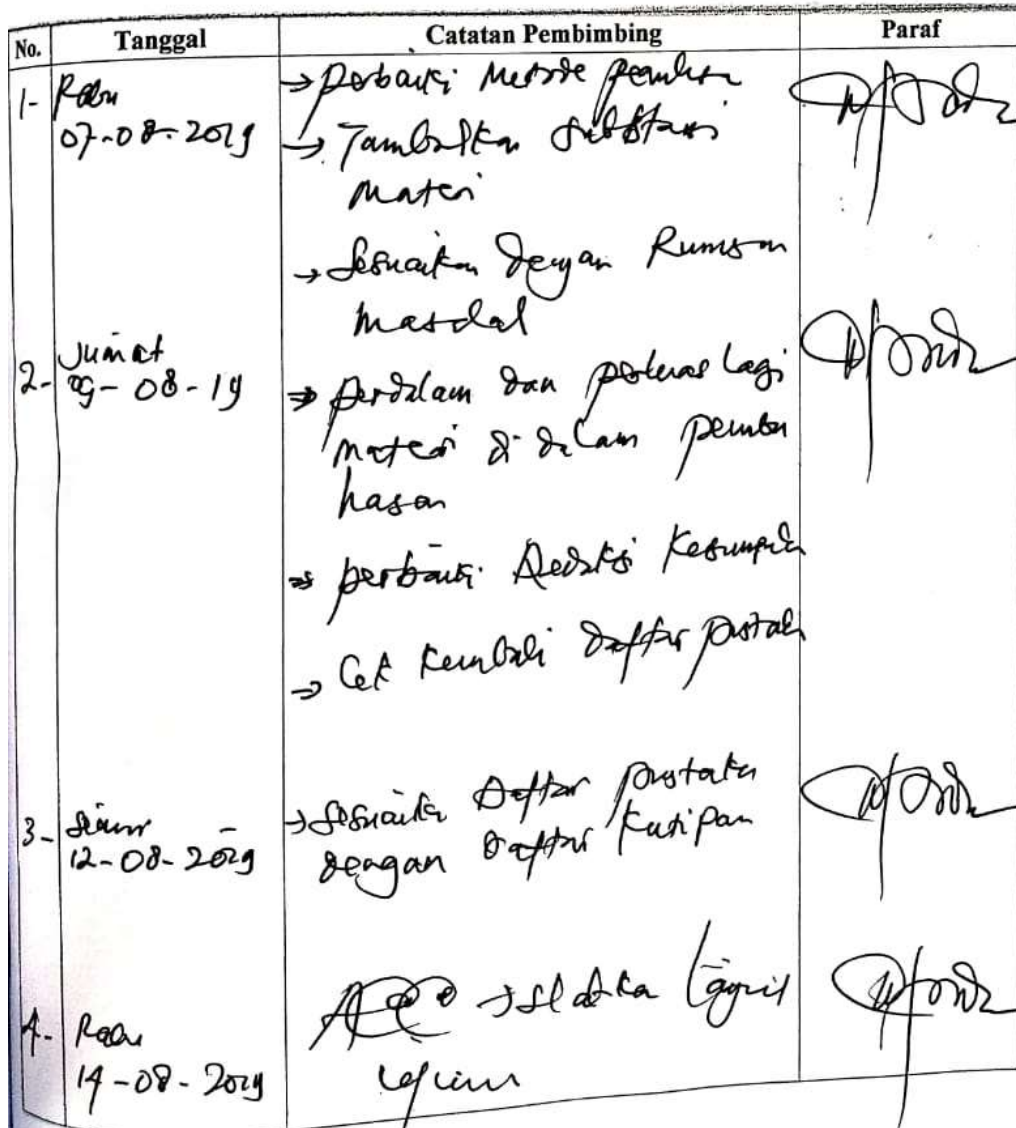 No. Tanggal Catatan Pembimbing Paraf
1- Rabu → perbaiki Metode penulisan
07-08-2019 → Tambahkan substansi
materi
→ Sesuaikan dengan Rumusan
masalah
2- Jumat
09-08-19 → perdalam dan perluas lagi
materi di dalam pemba
hasan
→ perbaiki Redaksi Kesimpulan
→ Cek kembali daftar pustaka
3- Senin → Sesuaikan Daftar pustaka
12-08-2019 dengan daftar kutipan
4- Rabu ACC →
14-08-2019